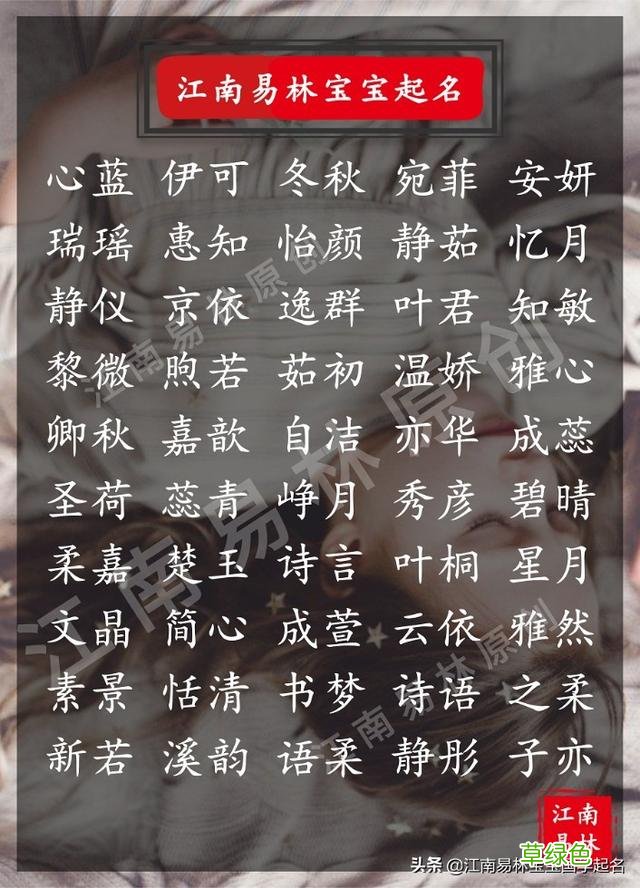 江南易林宝宝起名
心蓝 伊可 冬秋 宛菲 安妍
瑞瑶 惠知 怡颜 静茹 忆月
静仪 京依 逸群 叶君 知敏
黎微 煦若 茹初 温娇 雅心
卿秋 嘉歆 自洁 亦华 成蕊
圣荷 蕊青 峥月 秀彦 碧晴
柔嘉 楚玉 诗言 叶桐 星月
文晶 简心 成萱 云依 雅然
素景 恬清 书梦 诗语 之柔
新若 溪韵 语柔 静彤 子亦
江南易林原创
江南易林原创
江南易林原创
江南
易林
草绿色
头条 @江南易林宝宝国学起名